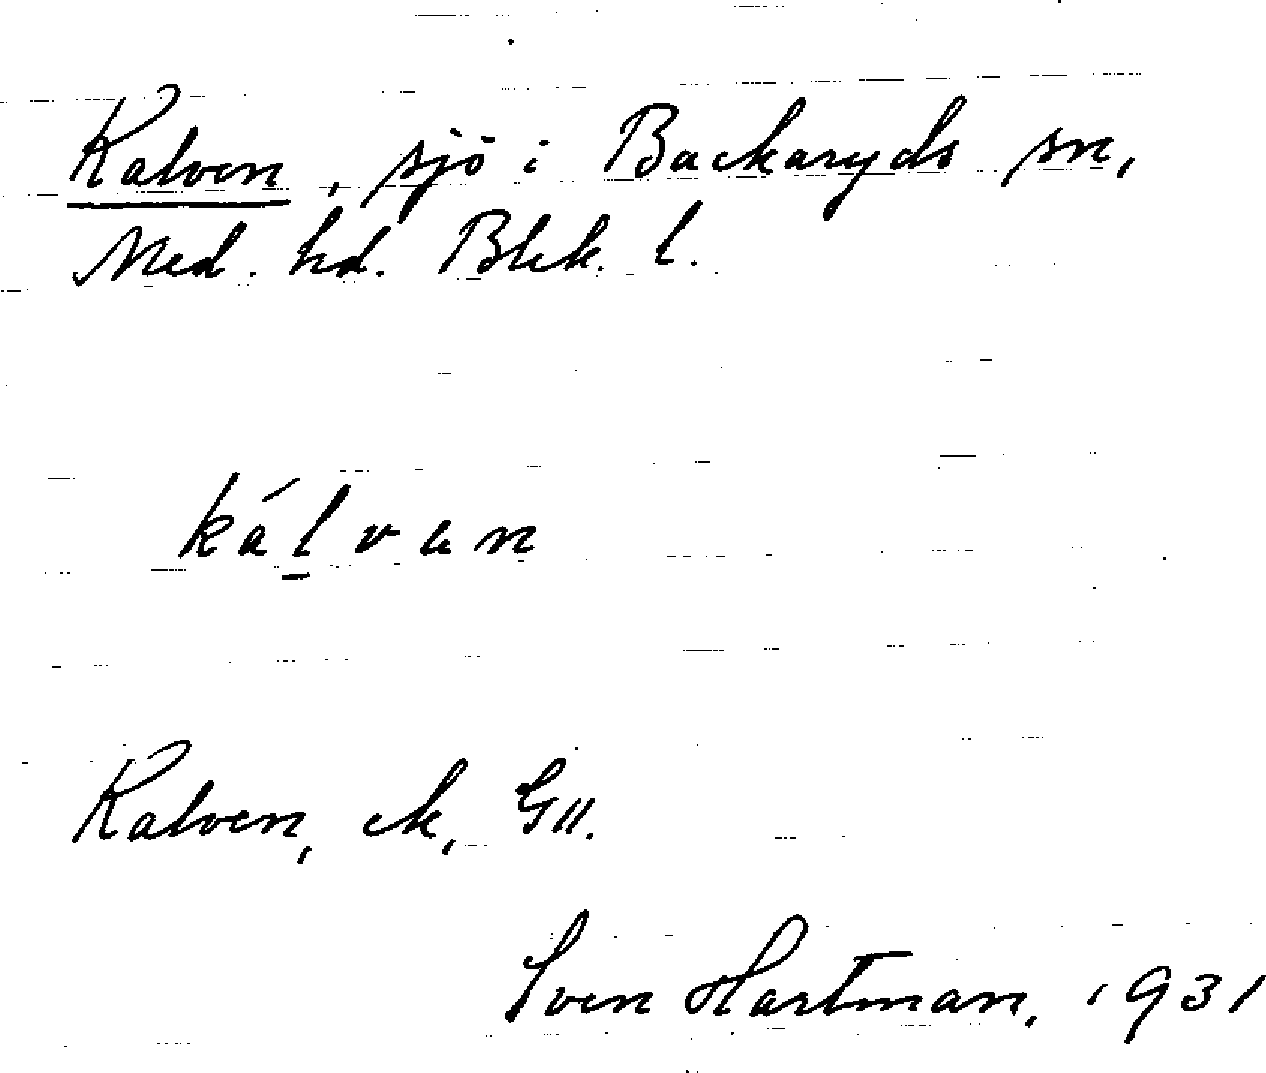 Kalven, sjö i Backaryds sn,
Med. hd. Blek. l.
kálvən
Kalven, ek, GII.
Sven Hartman, 1931